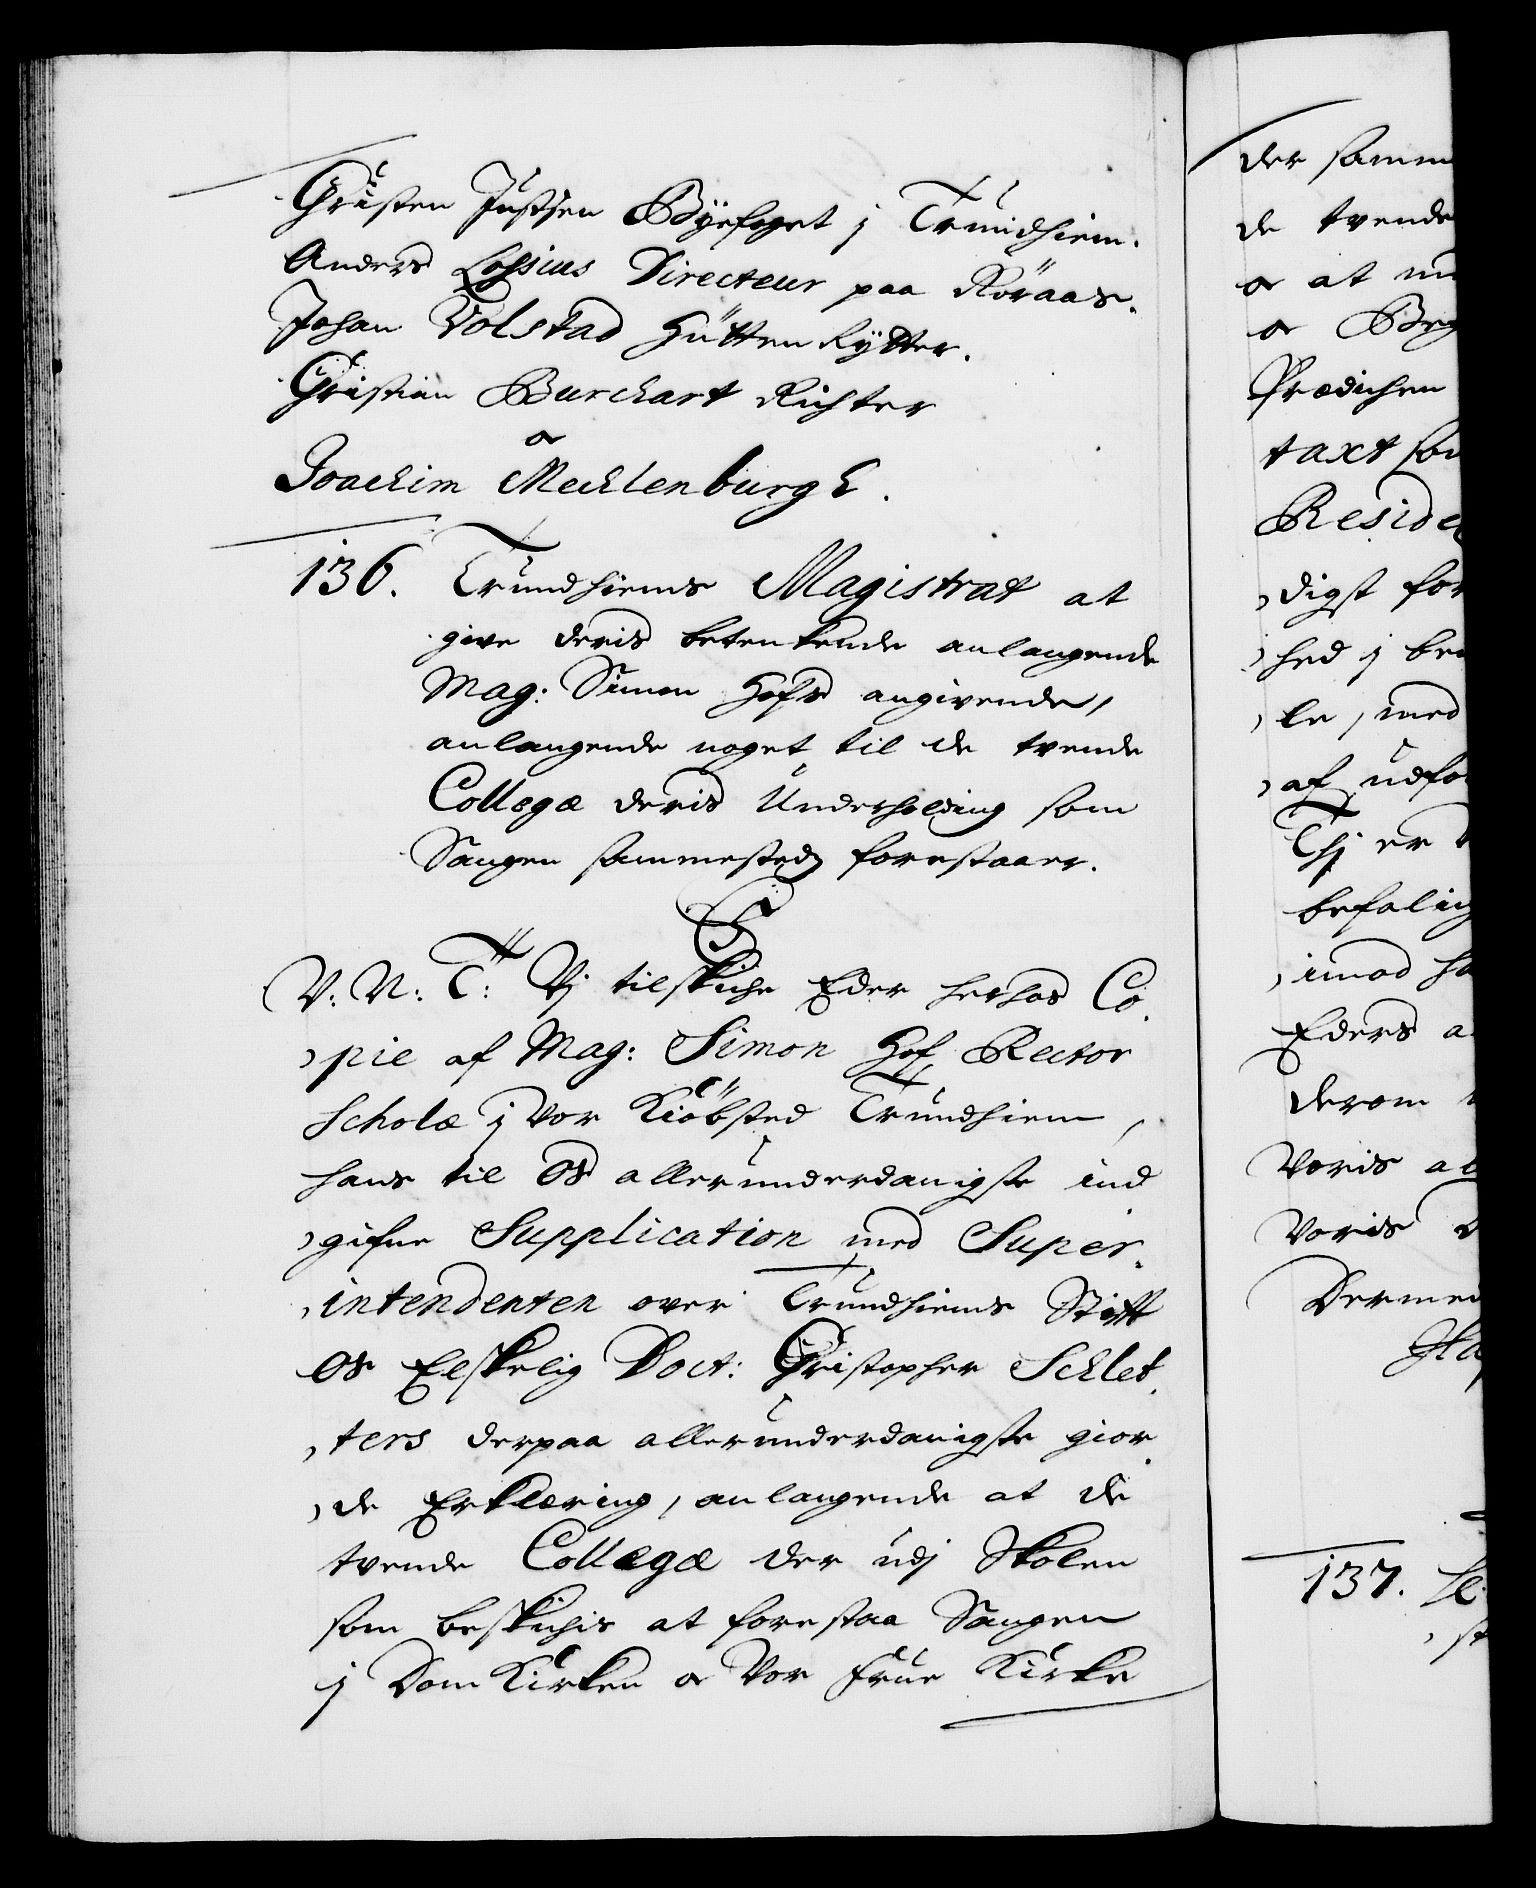 Christen Justsen Byefoget j Trundhiem.
Anders Lossius Directeur paa Röraas.
Johan Volstad Hütten Rytter.
Christian Burchart Richter
og
Joachim Mechlenburgh.
136. Trundhiems Magistrat at
give deris betenkende anlangende
Mag: Simon Hofs angivende,
anlangende noget til de tvende
Collegæ deris Underholding som
Sangen sammesteds forestaaer.
C
V: N: T: Vj tilskiche Eder herhos Co,
,pie af Mag: Simon Hof Rector
Scholæ j vor Kiöbsted Trundhiem,
hans til Os allerunderdanigste ind
,gifne Supplication med Super,
,intendenten over Trundhiems Stift
Os Elskelig Doct: Christopher Schlet,
,ters derpaa allerunderdanigste gior,
,de Erklæring, anlangende at de
tvende Collegæ der udj Skolen
som beskichis at forestaa Sangen
j Dom Kirken og Vor Frue Kirke
der samm
de tvende
og at
og Beg
Prædichen
taxt
Reside
,digst for
,hed j
,le, med
,af udfo
Thj er
befaling
,imod
Eders a
derom
Voris al
Voris
Dermed
137.